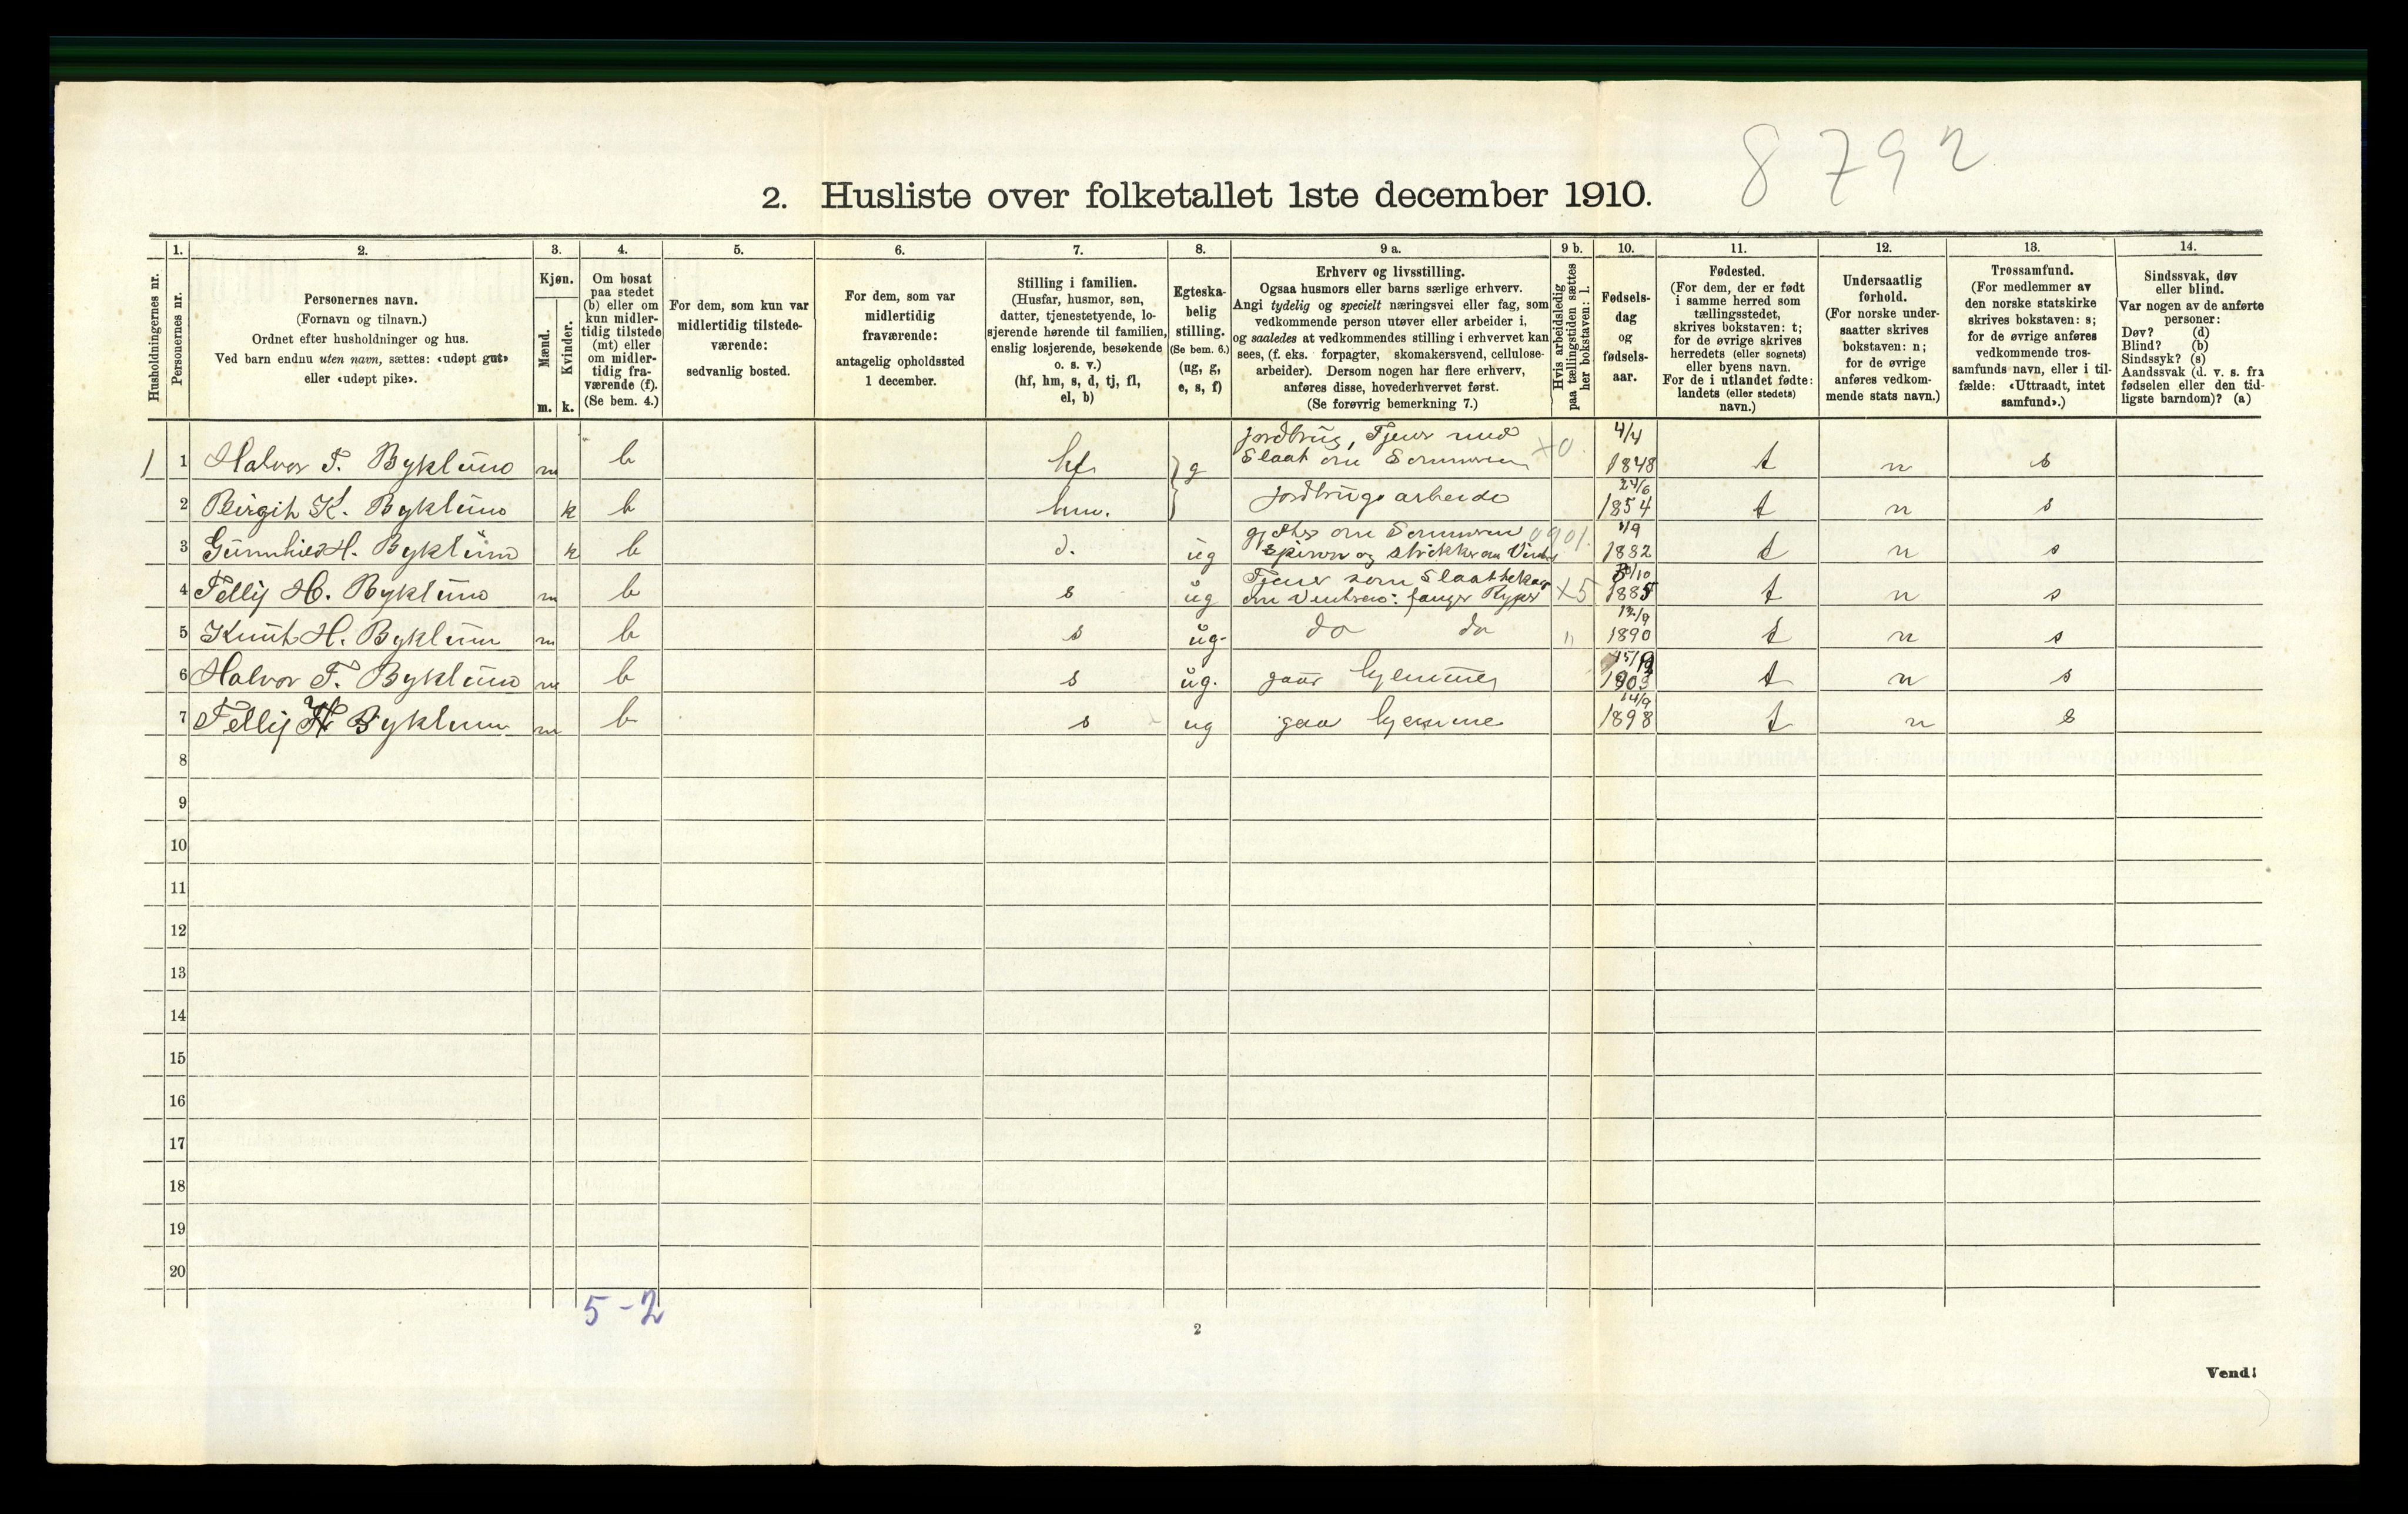 8792
2. Husliste over folketallet 1ste december 1910.
Husholdningernes nr.
1.
Personernes nr.
2.
Personernes navn.
(Fornavn og tilnavn.)
Ordnet efter husholdninger og hus.
Ved barn endnu uten navn, sættes: «udøpt gut»
eller «udøpt pike».
3.
Kjøn.
Mænd.
Kvinder.
m. k.
4.
Om bosat
paa stedet
(b) eller om
kun midler-
tidig tilstede
(mt) eller
om midler-
tidig fra-
værende (f).
(Se bem. 4.)
5.
For dem, som kun var
midlertidig tilstede-
værende:
sedvanlig bosted.
6.
For dem, som var
midlertidig
fraværende:
antagelig opholdssted
1 december.
7.
Stilling i familien.
(Husfar, husmor, søn,
datter, tjenestetyende, lo-
sjerende hørende til familien,
enslig losjerende, besøkende
o. s. v.)
(hf, hm, s, d, tj, fl,
el, b)
8.
Egteska-
belig
stilling.
(Se bem. 6.)
(ug, g,
e, s, f)
9 a.
Erhverv og livsstilling.
Ogsaa husmors eller barns særlige erhverv.
Angi tydelig og specielt næringsvei eller fag, som
vedkommende person utøver eller arbeider i,
og saaledes at vedkommendes stilling i erhvervet kan
sees, (f. eks. forpagter, skomakersvend, cellulose-
arbeider). Dersom nogen har flere erhverv,
anføres disse, hovederhvervet først.
(Se forøvrig bemerkning 7.)
9 b.
Hvis arbeidsledig
paa tællingstiden sættes
her bokstaven: l.
10.
Fødsels-
dag
og
fødsels-
aar.
11.
Fødested.
(For dem, der er født
i samme herred som
tællingsstedet,
skrives bokstaven: t;
for de øvrige skrives
herredets (eller sognets)
eller byens navn.
For de i utlandet fødte:
landets (eller stedets)
navn.)
12.
Undersaatlig
forhold.
(For norske under-
saatter skrives
bokstaven: n;
for de øvrige
anføres vedkom-
mende stats navn.)
13.
Trossamfund.
(For medlemmer av
den norske statskirke
skrives bokstaven: s;
for de øvrige anføres
vedkommende tros-
samfunds navn, eller i til-
fælde: «Uttraadt, intet
samfund».)
14.
Sindssvak, døv
eller blind.
Var nogen av de anførte
personer:
Døv? (d)
Blind? (b)
Sindssyk? (s)
Aandssvak (d. v. s. fra
fødselen eller den tid-
ligste barndom)? (a)
1 1 Halvor T. Byklum m b hf g Jordbrug, Tjener med Slaat om Sommeren x0. 4/4 1848 t n s
2 Birgit K. Byklum k b hm. Jordbrugsarbeide 24/6 1854 t n s
3 Gunnhild H. Byklum k b d. ug gjæter om Sommeren spinner og strikker om Vinter 0901. 1/9 1882 t n s
4 Tellij H. Byklum m b s ug Tjener som Slaattekar om Vinteren: fanger Ryper x5 /10 1885 t n s
5 Knut H. Byklum m b s ug. do do " 12/9 1890 t n s
6 Halvor T. Byklum m b s ug. gaar hjemme 1903 t n s
7 Tellij H Byklum m b s ug gaar hjemme 14/9 1898 t n s
8
9
10
11
12
13
14
15
16
17
18
19
20
5-2
2
Vend!